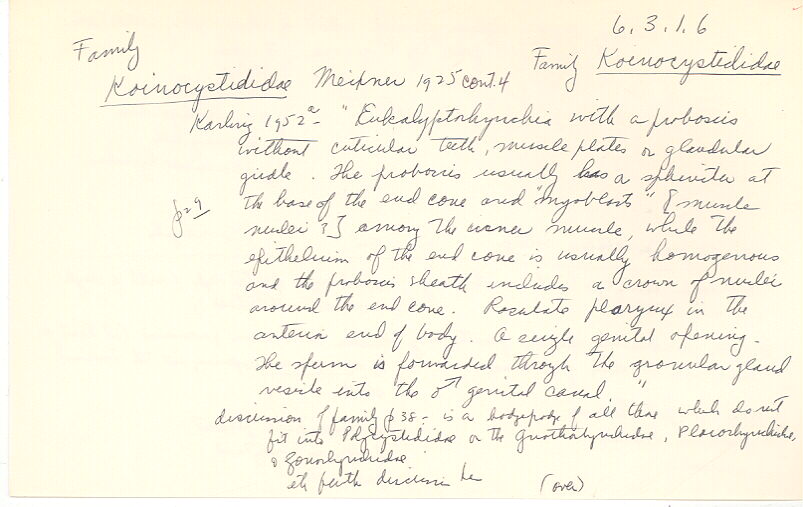 6.3.1.6
Family Family Koinocystididae
Koinocystididae Meixner 1925 cont. 4
Karling 1952a - "Eukalyptorhynchia with a proboscis
without cuticular teeth, muscle plates or glandular
girdle. The proboscis usually has a sphincter at
p 29 the base of the end cone and "myoblasts" [muscle
nuclei ?] among the inner muscle, while the
epithelium of the end cone is usually homogenous
and the proboscis sheath includes a crown of nuclei
around the end cone. Rosulate pharynx in the
anterior end of body. A single genital opening.
The sperm is forwarded through the granular gland
vesicle into the ♂ genital canal."
discussion of family p 38 - is a hodgepodge of all those which do not
fit into Polycystididae or the Gnathorhynchidae, Placorhynchidae,
& Zonorhynchidae
discussion (over)